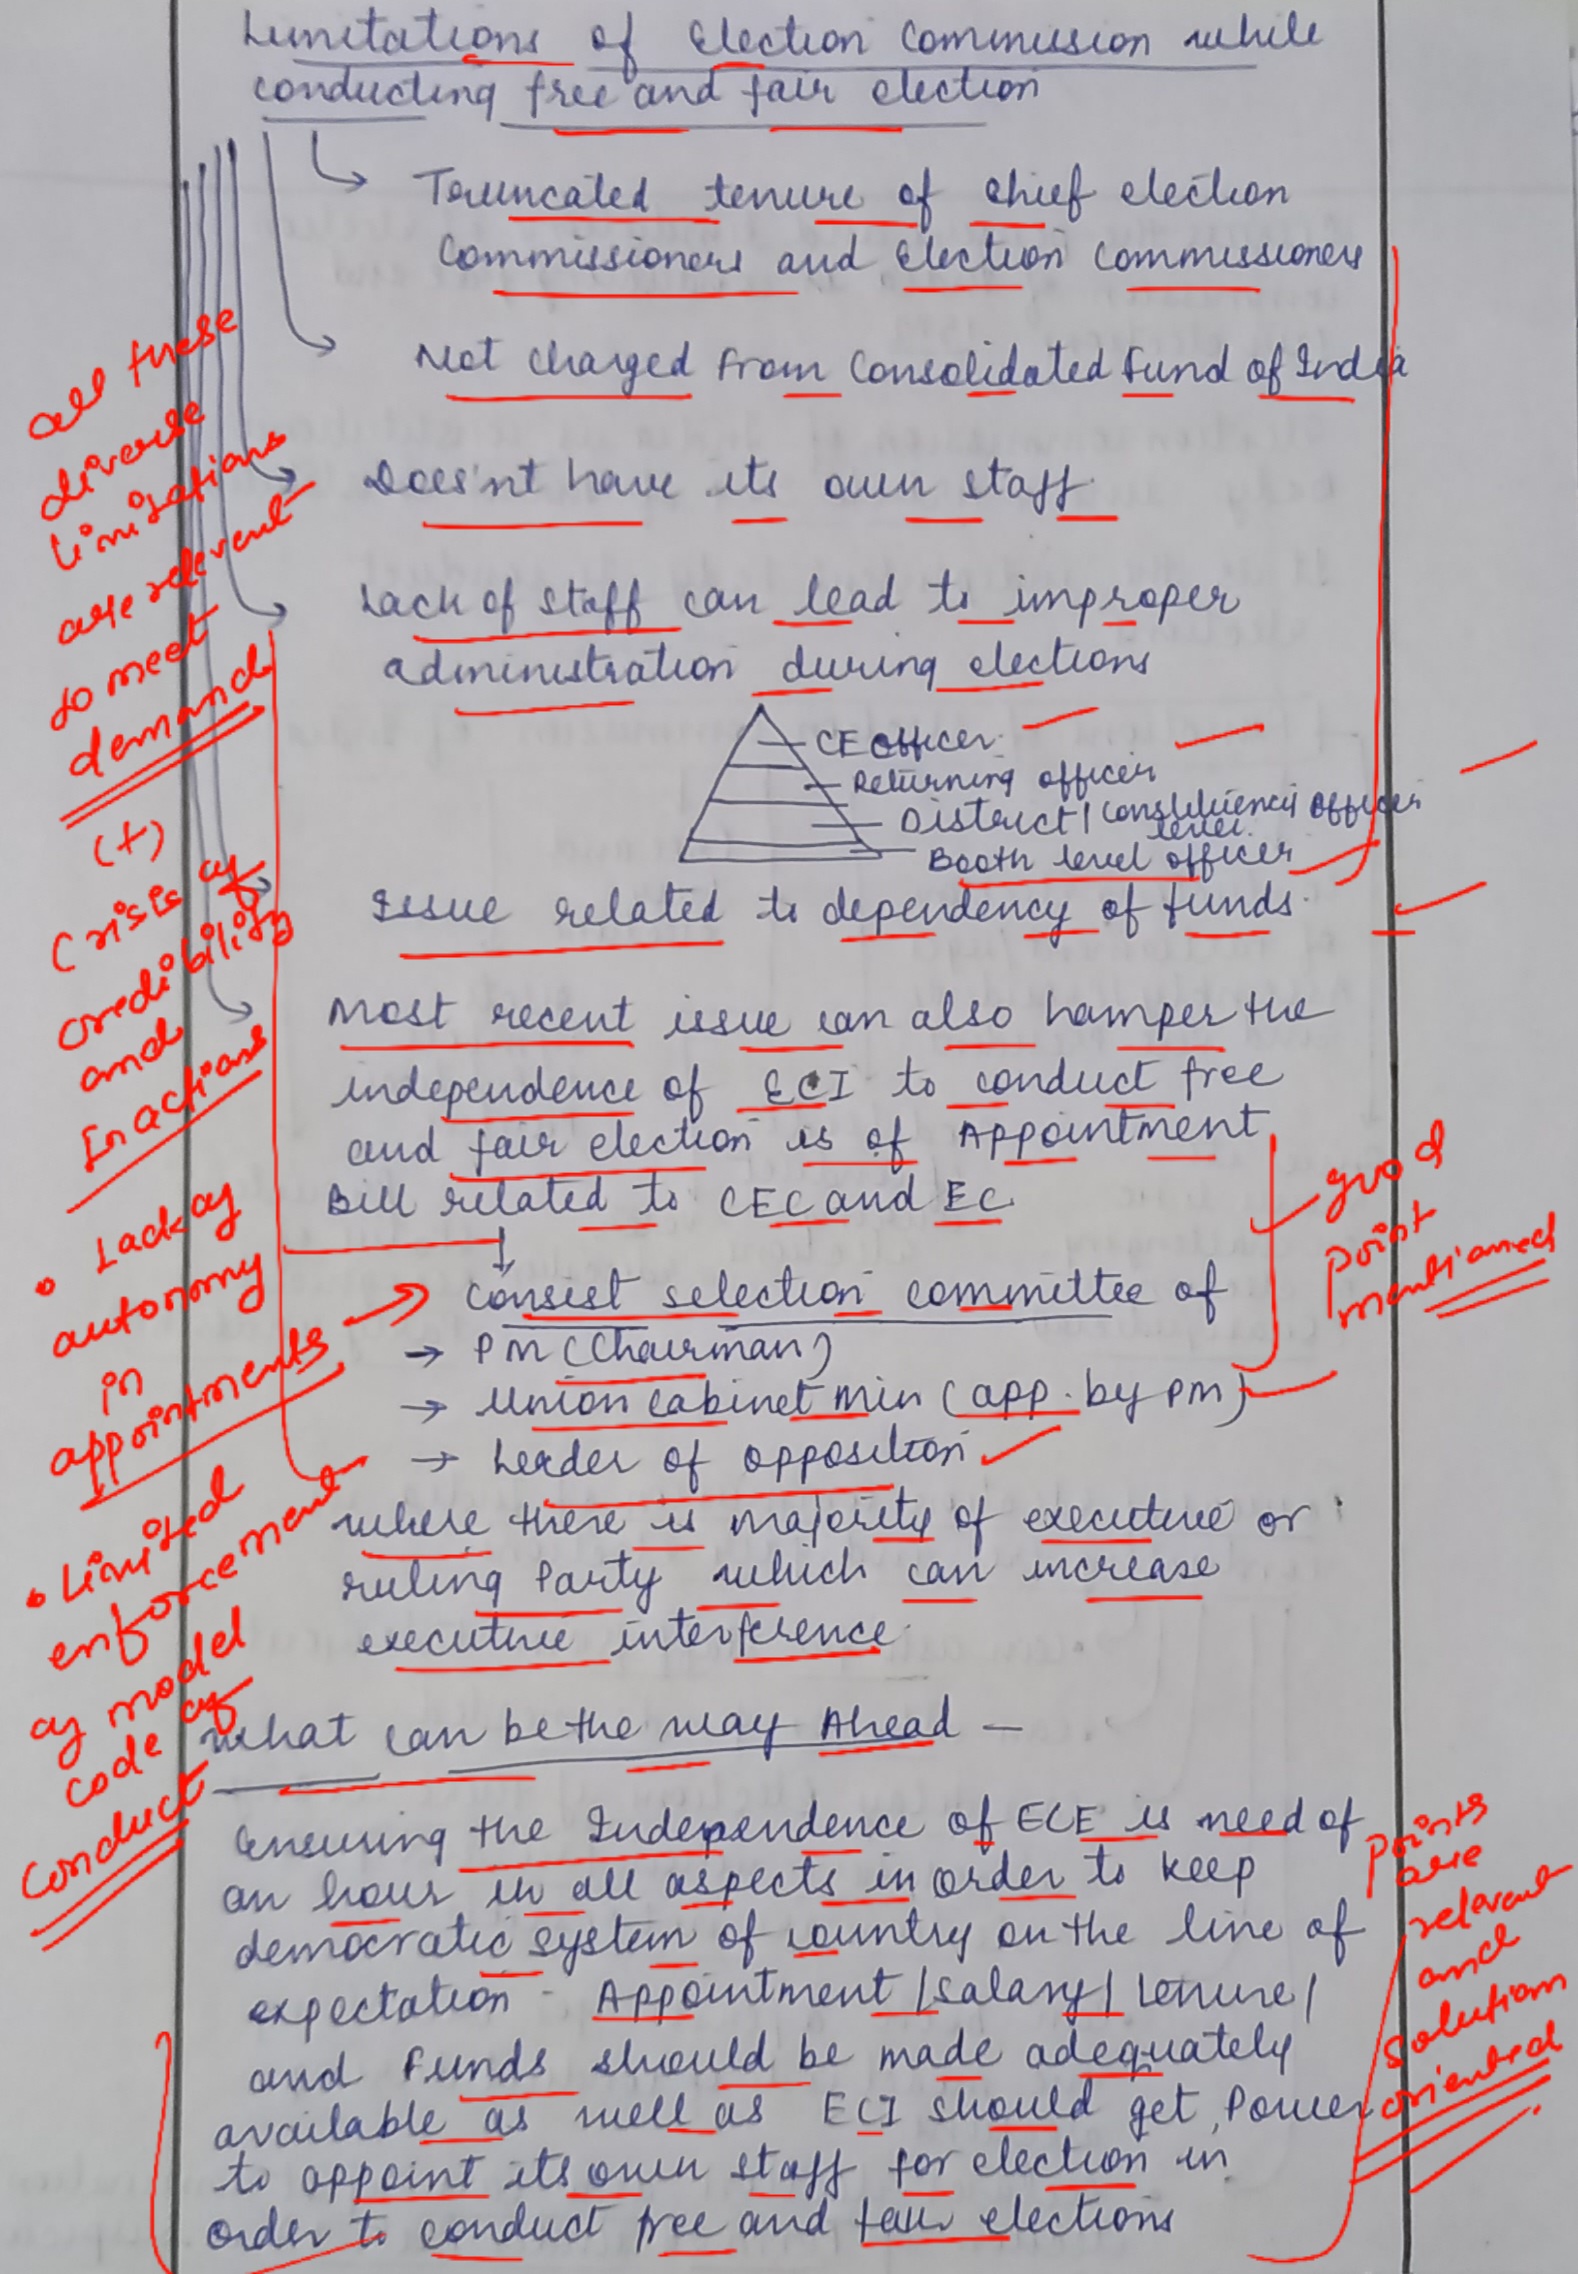 Limitations of Election Commission while
conducting free and fair election
Truncated tenure of chief election
Commissioners and Election Commissioners
Not charged from Consolidated Fund of India
Does'nt have its own staff.
Lack of staff can lead to improper
administration during elections
CE officer
Returning officer
District / Constituency officer
level
Booth level officer
Issue related to dependency of funds.
Most recent issue can also hamper the
independence of ECI to conduct free
and fair election is of Appointment
Bill related to CEC and EC
Consist selection committee of
→ PM (Chairman)
→ Union cabinet min (app. by PM)
→ Leader of opposition
where there is majority of executive or
ruling Party which can increase
executive interference.
What can be the way Ahead —
Ensuring the Independence of ECE is need of
an hour in all aspects in order to keep
democratic system of country on the line of
expectation. Appointment / salary / tenure /
and Funds should be made adequately
available as well as ECI should get Power
to appoint its own staff for election in
order to conduct free and fair elections
all these
diverse
limitations
are relevant
to meet
demand
(+)
Crisis of
credibility
and
Inactions
• Lack of
autonomy
in
appointments
• Limited
enforcement
of model
code of
conduct
good
point
mentioned
Points
are
relevant
and
solution
oriented